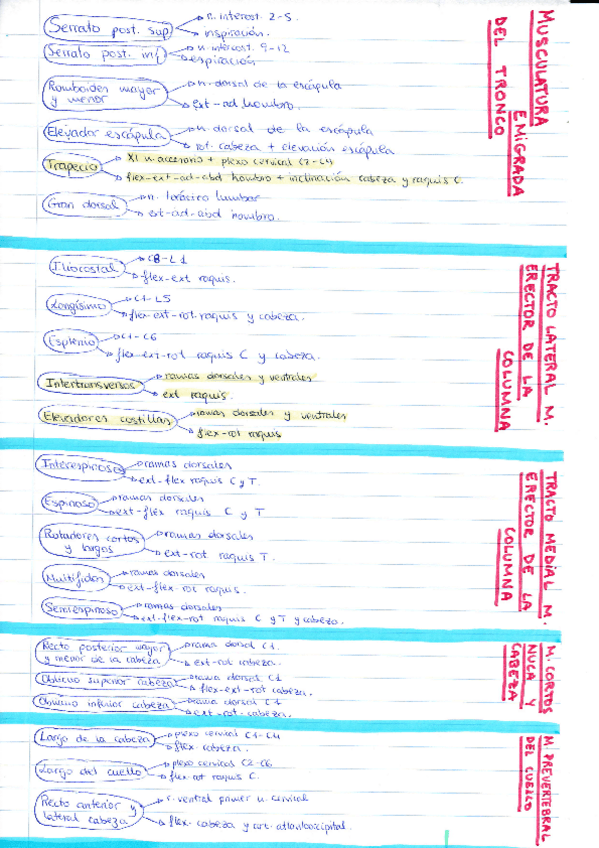 MUSCULATURA EMIGRADA
DEL TRONCO
Serrato post. sup
n. intercost. 2-5.
inspiración.
Serrato post. inf
n. intercost. 9-12
espiración
Romboides mayor
y menor
n. dorsal de la escápula
ext-ad hombro.
Elevador escápula
n. dorsal de la escápula
rot. cabeza + elevación escápula
Trapecio
XI n. accesorio + plexo cervical C2-C4
flex-ext-ad-abd hombro + inclinación cabeza y raquis C.
Gran dorsal
n. torácico lumbar
ext-ad-abd hombro.
TRACTO LATERAL M.
ERECTOR DE LA
COLUMNA
Iliocostal
C8-L1
flex-ext raquis.
Longísimo
C1-L5
flex-ext-rot raquis y cabeza.
Esplenio
C1-C6
flex-ext-rot raquis C y cabeza.
Intertransversos
ramas dorsales y ventrales
ext raquis.
Elevadores costillas
ramas dorsales y ventrales
flex-rot raquis
TRACTO MEDIAL M.
ERECTOR DE LA
COLUMNA
Interespinoso
ramas dorsales
ext-flex raquis C y T.
Espinoso
ramas dorsales
ext-flex raquis C y T
Rotadores cortos
y largos
ramas dorsales
ext-rot raquis T.
Multífidos
ramas dorsales
ext-flex-rot raquis.
Semiespinoso
ramas dorsales
ext-flex-rot raquis C y T y cabeza.
M. CORTOS
NUCA Y
CABEZA
Recto posterior mayor
y menor de la cabeza
rama dorsal C1.
ext-rot cabeza.
Oblicuo superior cabeza
rama dorsal C1
flex-ext-rot cabeza.
Oblicuo inferior cabeza
rama dorsal C1
ext-rot-cabeza.
M PREVERTEBRAL
DEL CUELLO
Largo de la cabeza
plexo cervical C1-C4
flex-cabeza.
Largo del cuello
plexo cervical C2-C6
flex-rot raquis C.
Recto anterior y
lateral cabeza
r. ventral primer n. cervical
flex-cabeza y art. atlantooccipital.